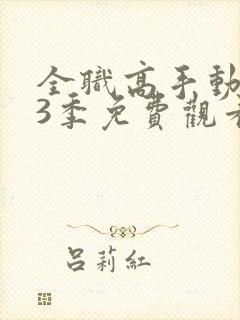 全職高手動
3季免費觀看
呂莉紅